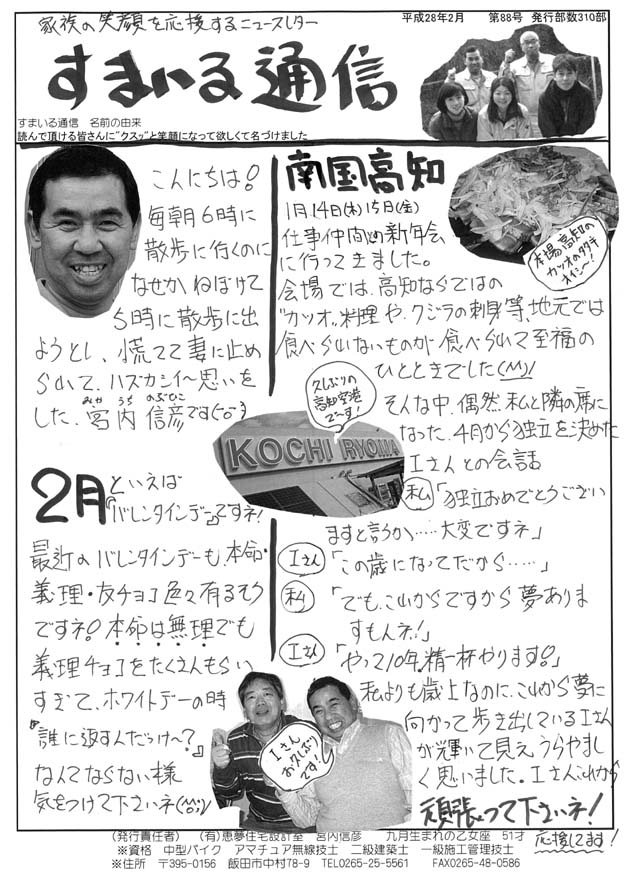 家族の笑顔を応援するニュースレター
平成28年2月 第88号 発行部数310部
すまいる通信
すまいる通信 名前の由来
読んで頂ける皆さんに"クスッ"と笑顔になって欲しくて名づけました
こんにちは!
毎朝6時に
散歩に行くのに
なぜか、ねぼけて
5時に散歩に出
ようとし、慌てて妻に止め
られて、ハズカシイ〜思いを
した、宮内 信彦です(^o^;)
みや うち のぶひこ
2月といえば
『バレンタインデー』ですネ!
最近のバレンタインデーも、本命・
義理・友チョコ色々有るそう
ですネ!本命は無理でも
義理チョコをたくさんもらい
すぎて、ホワイトデーの時
『誰に返すんだっけ〜?』
なんてならない様
気をつけて下さいネ(^o^;)
南国高知
1月14日(木)15日(金)
仕事仲間の新年会
に行ってきました。
会場では、高知ならではの
"カツオ"料理や、クジラの刺身等、地元では
食べられないものが食べられて至福の
ひとときでした(^^)!
本場高知の
カツオのタタキ
オイシー!
久しぶりの
高知空港
で〜す!
KOCHI RYOMA
そんな中、偶然、私と隣の席に
なった、4月から独立を決めた
Iさんとの会話
私「独立おめでとうござい
ますと言うか……大変ですネ」
Iさん「この歳になってだから……」
私「でも、これからですから夢ありま
すもんネ!」
Iさん「やって10年、精一杯やります!」
私よりも歳上なのに、これから夢に
向かって歩き出しているIさん
が輝いて見え、うらやまし
く思いました。Iさんこれから
頑張って下さいネ!
応援してます!
Iさん、
お久しぶり
です!
(発行責任者) (有)恵夢住宅設計室 宮内信彦 九月生まれの乙女座 51才
※資格 中型バイク アマチュア無線技士 二級建築士 一級施工管理技士
※住所 〒395-0156 飯田市中村78-9 TEL0265-25-5561 FAX0265-48-0586